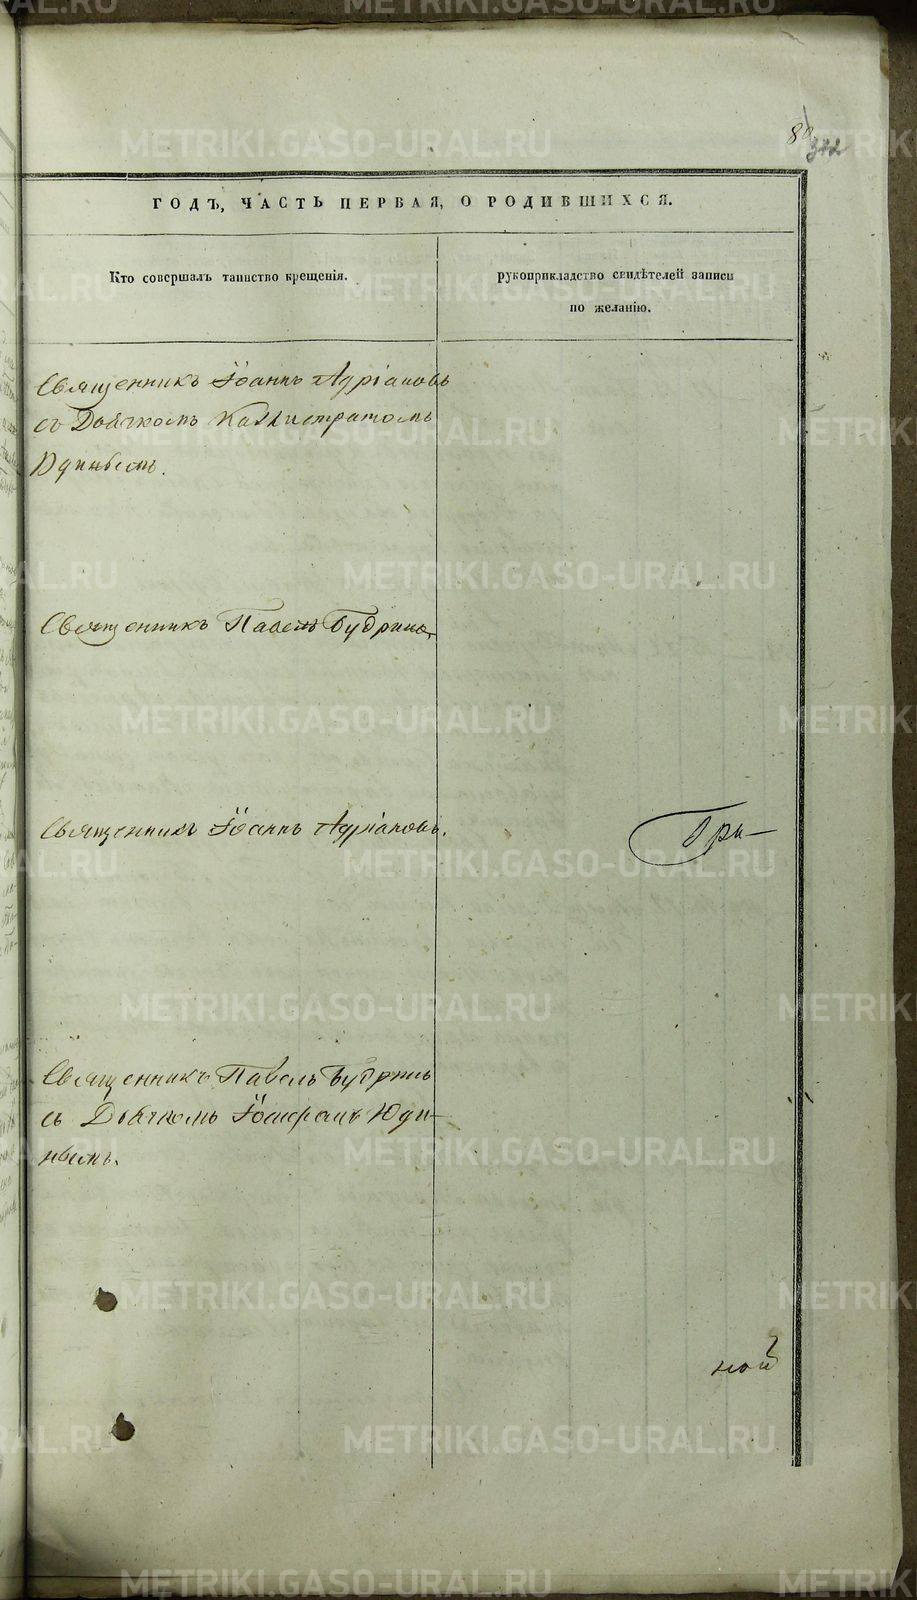 80
342
ГОДЪ, ЧАСТЬ ПЕРВАЯ, О РОДИВШИХСЯ.
Кто совершалъ таинство крещенія.
рукоприкладство свидѣтелей записи
по желанію.
Священникъ Іоаннъ Адріановъ
съ Дьячкомъ Каллистратомъ
Юдинымъ.
Священникъ Павелъ Будринъ
Священникъ Іоаннъ Адріановъ.
При-
Священникъ Павелъ Будринъ
съ Дьячкомъ Юди-
нымъ.
ной
METRIKI.GASO-URAL.RU